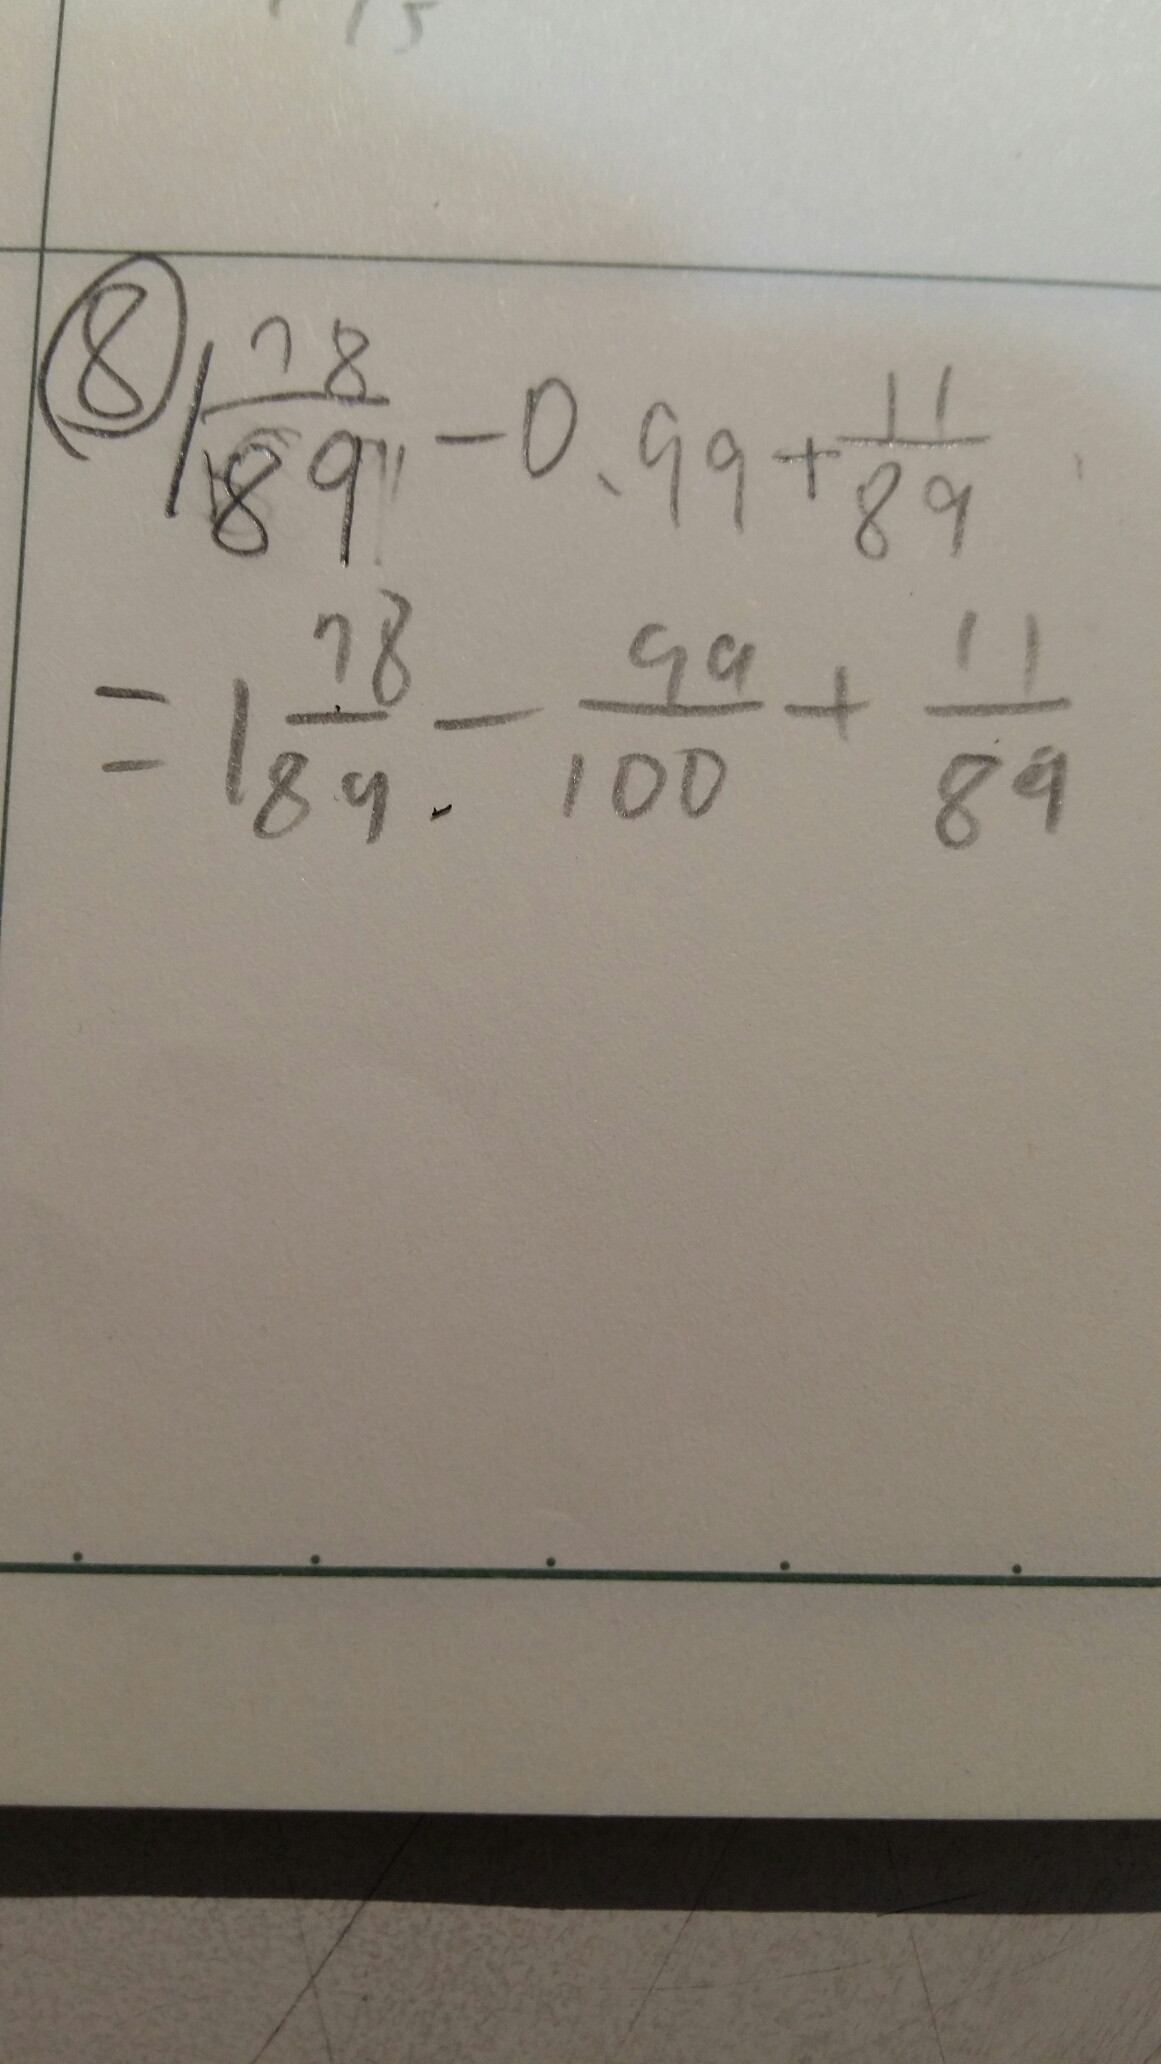 15
⑧ 1 78/89 - 0.99 + 11/89
= 1 78/89 - 99/100 + 11/89